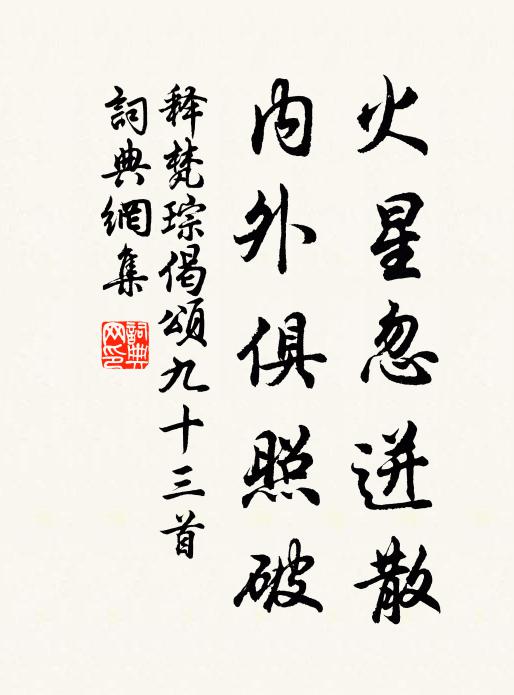 火星忽迸散
内外俱照破
释梵琮偈颂九十三首
詞典網集
詞典网印